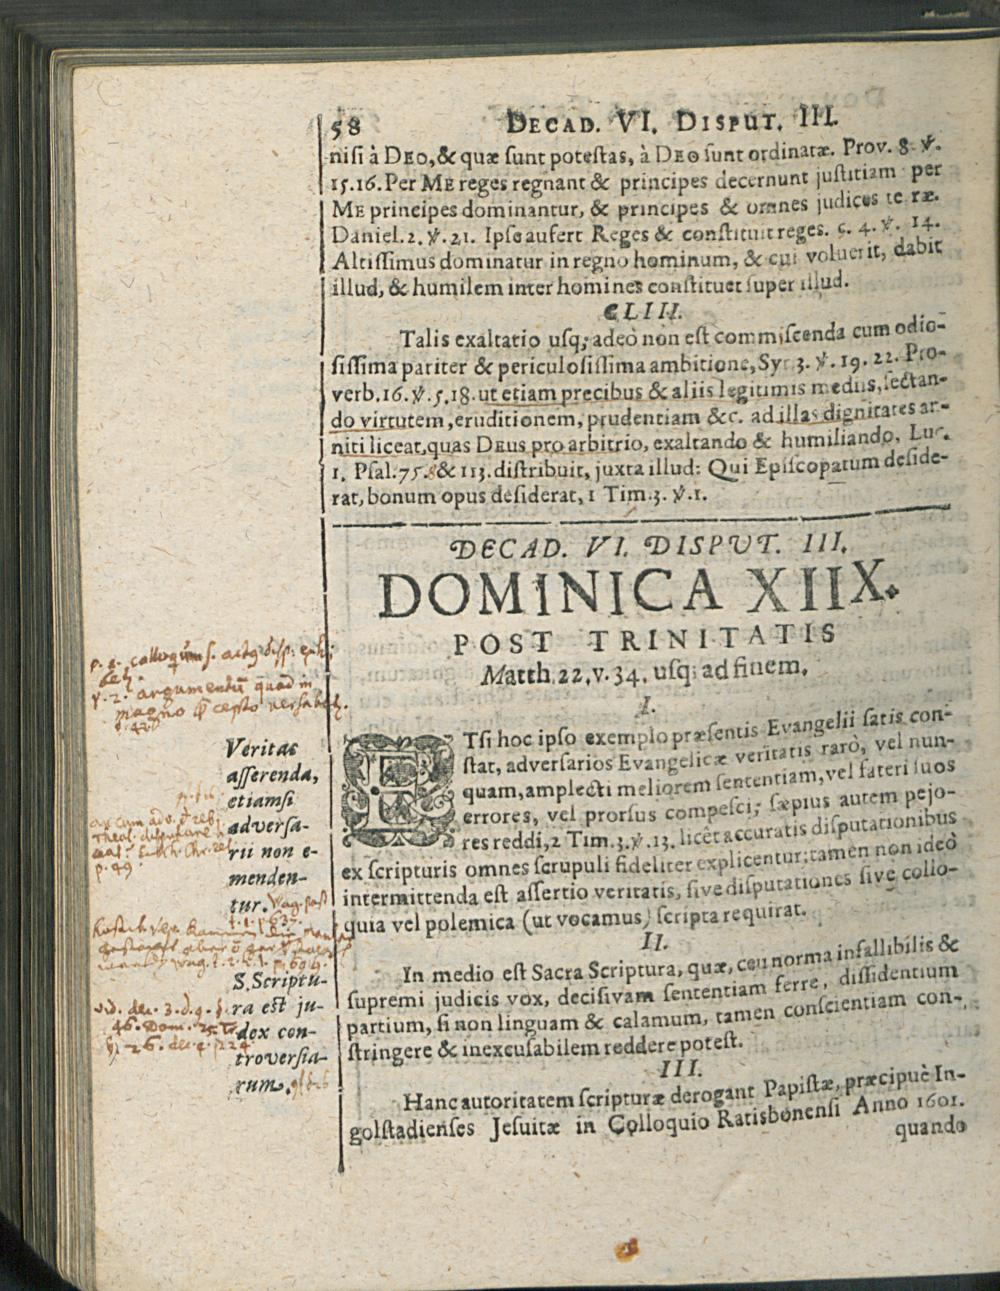 58 DECAD. VI. DISPUT. III.
nisi à DEO, & quæ sunt potestas, à DEO sunt ordinatæ. Prov. 8. ℣.
15.16. Per ME reges regnant & principes decernunt justitiam per
ME principes dominantur, & principes & omnes judices te ræ.
Daniel. 2. ℣. 21. Ipse aufert Reges & constituit reges. c. 4. ℣. 14.
Altissimus dominatur in regno hominum, & cui voluerit, dabit
illud, & humilem inter homines constituet super illud.
CLIII.
Talis exaltatio usq; adeò non est commiscenda cum odio-
sissima pariter & periculosissima ambitione, Syr 3. ℣. 19. 22. Pro-
verb. 16. ℣. 5. 18. ut etiam precibus & aliis legitimis mediis, sectan-
do virtutem, eruditionem, prudentiam &c. ad illas dignitates ar-
niti liceat, quas DEUS pro arbitrio, exaltando & humiliando, Luc.
1. Psal. 75. 8 & 113. distribuit, juxta illud: Qui Episcopatum deside-
rat, bonum opus desiderat, 1 Tim. 3. ℣. 1.
DECAD. VI. DISPUT. III.
DOMINICA XIIX.
POST TRINITATIS
Matth. 22. v. 34. usq; ad finem.
I.
ETsi hoc ipso exemplo præsentis Evangelii satis con-
stat, adversarios Evangelicæ veritatis rarò, vel nun-
quam, amplecti meliorem sententiam, vel fateri suos
errores, vel prorsus compesci; sæpius autem pejo-
res reddi, 2 Tim. 3. ℣. 13. licèt accuratis disputationibus
ex scripturis omnes scrupuli fideliter explicentur: tamen non ideò
intermittenda est assertio veritatis, sive disputationes sive collo-
quia vel polemica (ut vocamus) scripta requirat.
Veritas
asserenda,
etiamsi
adversa-
rii non e-
menden-
tur.
II.
In medio est Sacra Scriptura, quæ, ceu norma infallibilis &
supremi judicis vox, decisivam sententiam ferre, dissidentium
partium, si non linguam & calamum, tamen conscientiam con-
stringere & inexcusabilem reddere potest.
S. Scriptu-
ra est ju-
dex con-
troversia-
rum.
III.
Hanc autoritatem scripturæ derogant Papistæ, præcipuè In-
golstadienses Jesuitæ in Colloquio Ratisbonensi Anno 1601.
quando